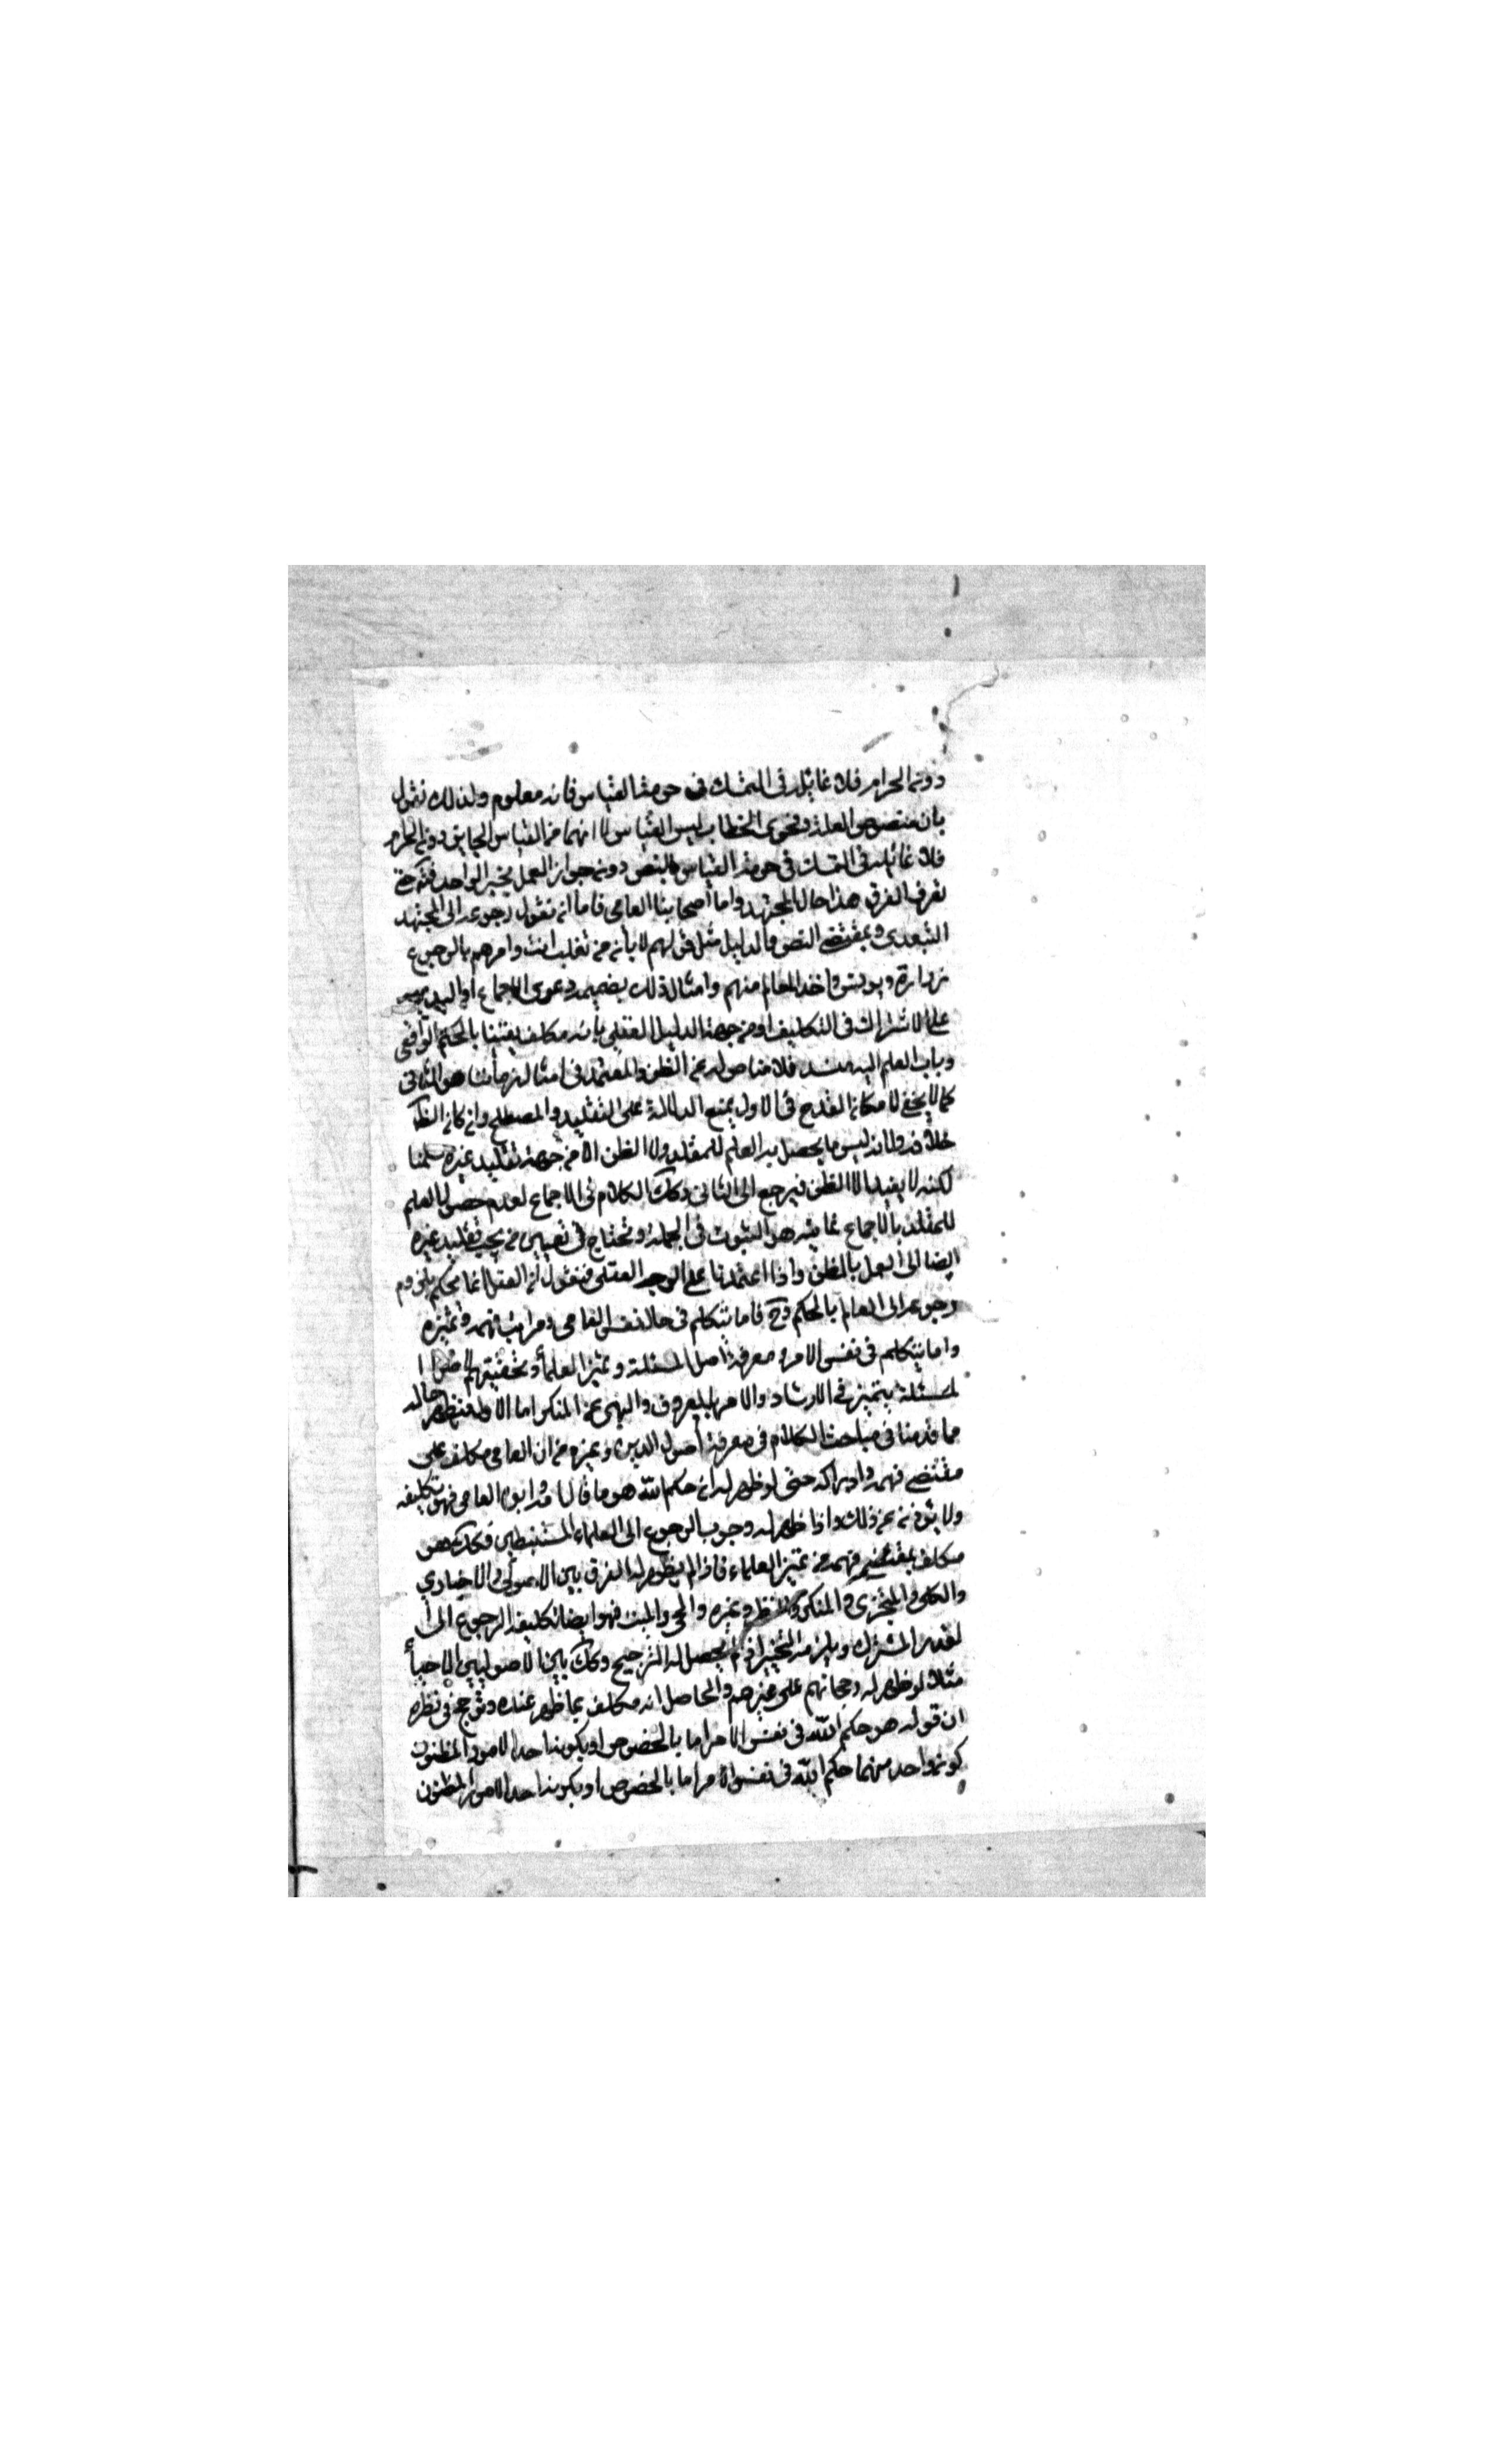 دون الحرام فلا غائلة في التمسك في حرمة القياس فانه معلوم ولذلك نقول
بان منصوص العلة وفحوى الخطاب ليس القياس لا انهما من القياس الجايز دون الحرام
فلا غائلة في التمسك في حرمة القياس بالنص دون جواز العمل بخبر الواحد فتدبر حتى
تعرف الفرق هذا حال المجتهد واما العامي فاما ان نقول رجوعه الى المجتهد
التعبدي وبمقتضى النص والدليل مثل قولهم لابان بن تغلب افت وامرهم بالرجوع
زرارة ويونس واخذ المعالم منهم وامثال ذلك بضميمة دعوى الاجماع او
على الاشتراك في التكليف او من جهة الدليل العقلي بانه مكلف يقينا بالحكم الواقعي
وباب العلم اليه منسد فلا مناص له عن الظن والمعتمد في امثال زماننا هو الثاني
كما لا يخفى لامكان القدح في الاول بمنع الدلالة على التقليد المصطلح وان كان الظ
خلافه ولانه ليس ما يحصل به العلم للمقلد ولا الظن الا من جهة تقليد غيره سلمنا
لكنه لا يفيد الا الظن فيرجع الى الثاني وكك الكلام في الاجماع لعدم حصول العلم
للمقلد بالاجماع غايته هو الثبوت في الجملة ونحتاج في تعيين من يجب تقليد غيره
ايضا الى العمل بالظن واذا اعتمدنا على الوجه العقلي فنقول ان العقل انما يحكم بلزوم
رجوعه الى العالم بالحكم وح فاما نتكلم في حال نفس العامي ومراتب فهمه وتميزه
واما نتكلم في نفس الامر ومعرفة اصل المسئلة وتميز العلماء وتحقيقهم لاصل ا
لمسئلة بتميز في الارشاد والامر بالمعروف والنهي عن المنكر اما الاول فيظهر حاله
مما قدمنا في مباحث الكلام في معرفة اصول الدين وغيره من ان العامي مكلف على
مقتضى فهمه وادراكه حتى لو ظهر له ان حكم الله هو ما قال ابوه العامي فهو تكليفه
ولا يؤخذ عن ذلك واذا ظهر له وجوب الرجوع الى العلماء المستنبطين فكذلك هو
مكلف بمقتضى فهمه من تميز العلماء فاذا لم يظهر له الفرق بين الاصولي والاخباري
والكلي والمتجزي والمنكر وغيره والحي والميت فهو ايضا تكليفه الرجوع الى ا
لقدر المشترك ويلزمه التخير اذ لم يحصل له الترجيح وكك بين الاصوليين الاحياء
مثلا لو ظهر له رجحانهم على غيرهم والحاصل انه مكلف بما ظهر عنده وترجح في نظره
ان قوله هو حكم الله في نفس الامر اما بالخصوص او بكونه احد الامور المظنون
كون واحد منهما حكم الله في نفس الامر اما بالخصوص او بكونه احد الامور المظنون